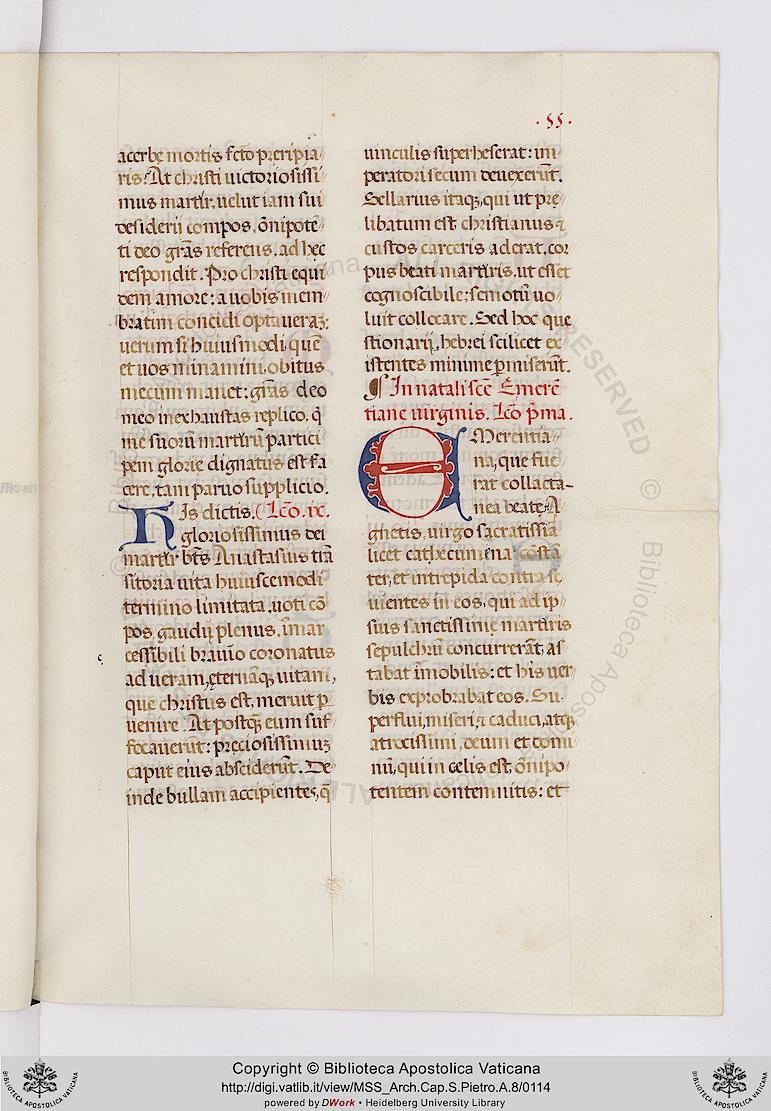 . 55 .
acerbę mortis fcto preripia
ris. At christi uictoriosissi
mus martir, uelut iam sui
desiderij compos, oīnipotē
ti deo grās referens, ad hęc
respondit. Pro christi equi
dem amore: a uobis mem
bratim concidi optaueraʒ:
uerum si huiusmodi, quē
et uos minamini, obitus
mecum manet: grās deo
meo inexhaustas replico. q̄
me suorū martirū partici
pem glorię dignatus est fa
cere, tam paruo supplicio.
His dictis. Lc̄o. ix.
gloriosissimus dei
martir bt̄s Anastasius trā
sitoria uita huiuscemodi
termino limitata, uoti cō
pos, gaudij plenus, īmar
cessibili brauio coronatus
ad ueram, ęternāqȝ uitam,
que christus est, meruit ꝑ
uenire. At postqȝ eum suf
focauerūt: pręciosissimuʒ
caput eius absciderūt. De
inde bullam accipientes, q̄
uinculis superheserat: im
peratori secum deuexerūt.
Sellarius itaqȝ, qui ut prę
libatum est, christianus ⁊
custos carceris aderat, cor
pus beati martiris, ut esset
cognoscibile: semotū uo
luit collocare. Sed hoc que
stionarij, hebrei scilicet ex
istentes minime ꝑmiserūt.
¶ In natali scē Emerē
tiane uirginis. Lc̄o p̄ma.
EMerentia
na, que fue
rat collacta
nea beatę A
ghetis, uirgo sacratissīa
licet cathecumena cōstā
ter, et intrepida contra sę
uientes in eos, qui ad ip
sius sanctissimę martiris
sepulchrū concurrerāt, as
tabat īmobilis: et his uer
bis exprobrabat eos. Su
perflui, miseri, ⁊ caduci, atqȝ
atrocissimi, deum et domi
nū, qui in celis est, oīnipo
tentem contemnitis: et
Copyright © Biblioteca Apostolica Vaticana
http://digi.vatlib.it/view/MSS_Arch.Cap.S.Pietro.A.8/0114
powered by DWork • Heidelberg University Library